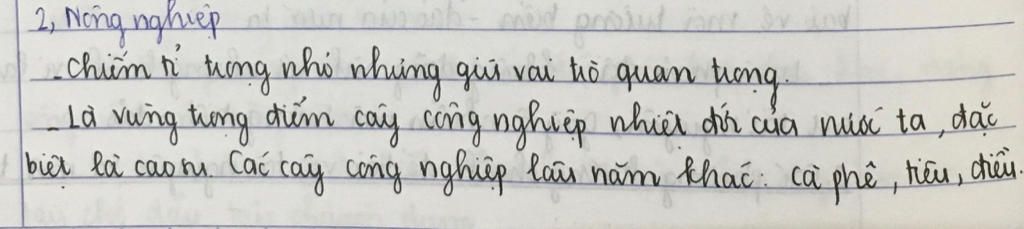 2, Nông nghiệp
- Chiếm tỉ trọng nhỏ nhưng giữ vai trò quan trọng.
- Là vùng trọng điểm cây công nghiệp nhiệt đới của nước ta, đặc
biệt là cao su. Các cây công nghiệp lâu năm khác: cà phê, tiêu, điều.